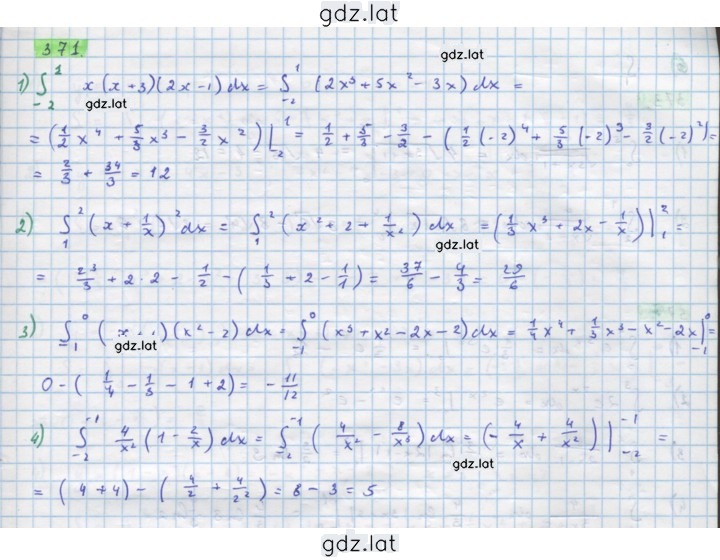 gdz.lat
371.
1) ∫₋₂¹ x(x+3)(2x-1)dx = ∫₋₂¹ (2x³+5x²-3x)dx =
gdz.lat
= (1/2 x⁴ + 5/3 x³ - 3/2 x²)|₋₂¹ = 1/2 + 5/3 - 3/2 - (1/2 (-2)⁴ + 5/3 (-2)³ - 3/2 (-2)²) =
= 2/3 + 34/3 = 12
2) ∫₁² (x + 1/x)² dx = ∫₁² (x² + 2 + 1/x²) dx = (1/3 x³ + 2x - 1/x)|₁² =
gdz.lat
= 2³/3 + 2·2 - 1/2 - (1/3 + 2 - 1/1) = 37/6 - 4/3 = 29/6
3) ∫₋₁⁰ (x+1)(x²-2)dx = ∫₋₁⁰ (x³+x²-2x-2)dx = 1/4 x⁴ + 1/3 x³ - x² - 2x|₋₁⁰ =
gdz.lat
0 - (1/4 - 1/3 - 1 + 2) = - 11/12
4) ∫₋₂⁻¹ 4/x² (1 - 2/x) dx = ∫₋₂⁻¹ (4/x² - 8/x³) dx = (- 4/x + 4/x²)|₋₂⁻¹ =
gdz.lat
= (4+4) - (4/2 + 4/2²) = 8 - 3 = 5
gdz.lat